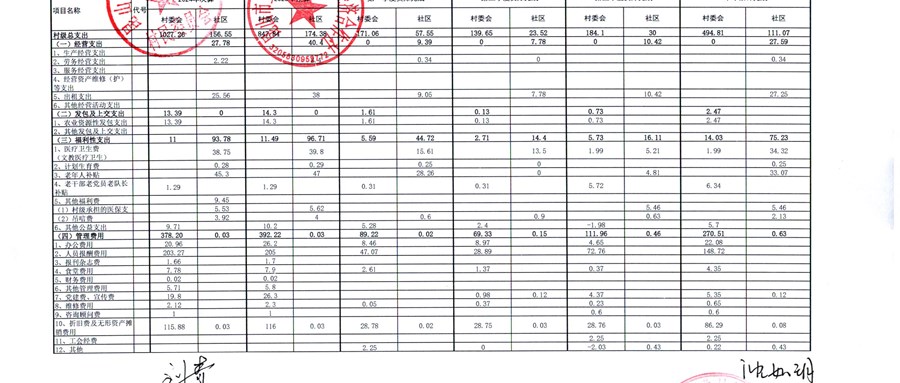 项目名称 代号 村委会 社区 村委会 社区 村委会 社区 村委会 社区 村委会 社区 村委会 社区
村级总支出 1027.26 156.55 847.84 174.38 171.06 57.55 139.65 23.52 184.1 30 494.81 111.07
(一)经营支出 27.78 40.4 0 9.39 0 7.78 0 10.42 0 27.59
1、生产经营支出
2、劳务经营支出 2.22 0.34 0 0.34
3、服务经营支出
4、经营资产维修(护)
等支出
5、出租支出 25.56 38 9.05 7.78 10.42 27.25
6、其他经营活动支出
(二)发包及上交支出 13.39 0 14.3 0 1.61 0.13 0.73 2.47
1、农业资源性发包支出 13.39 14.3 1.61 0.13 0.73 2.47
2、其他发包及上交支出
(三)福利性支出 11 93.78 11.49 96.71 5.59 44.72 2.71 14.4 5.73 16.11 14.03 75.23
1、医疗卫生费
(文教医疗卫生) 38.75 39.8 15.61 13.5 1.99 5.21 1.99 34.32
2、计划生育费 0.28 0.29 0.25 0 0.25
3、老年人补贴 45.3 47 28.26 0 4.81 33.07
4、老干部老党员老队长
补贴 1.29 1.29 0.31 0.31 5.72 6.34
5、其他福利费 9.45
(1)村级承担的医保支 5.53 5.62 5.46 5.46
(2)吊唁费 3.92 4 0.6 0.9 0.63 2.13
6、其他公益支出 9.71 10.2 5.28 2.4 -1.98 5.7
(四)管理费用 378.20 0.03 392.22 0.03 89.22 0.02 69.33 0.15 111.96 0.46 270.51 0.63
1、办公费用 20.96 26.2 8.46 8.97 4.65 22.08
2、人员报酬费用 203.27 205 47.07 28.89 72.76 148.72
3、报刊杂志费 1.66 1.7
4、食堂费用 7.78 7.9 2.61 1.37 0.37 4.35
5、财务费用 0.02 0.02
6、其他管理费用 5.71 5.8
7、党建费、宣传费 19.8 26.3 0.98 0.12 4.37 5.35 0.12
8、维修费用 2.12 2.3 0.05 0.37 0.23 0.65
9、咨询顾问费 1 1 0.6 0.6
10、折旧费及无形资产摊
销费用 115.88 0.03 116 0.03 28.78 0.02 28.75 0.03 28.76 0.03 86.29 0.08
11、工会经费 2.25 2.25
12、其他 2.25 0 -2.03 0.43 0.22 0.43